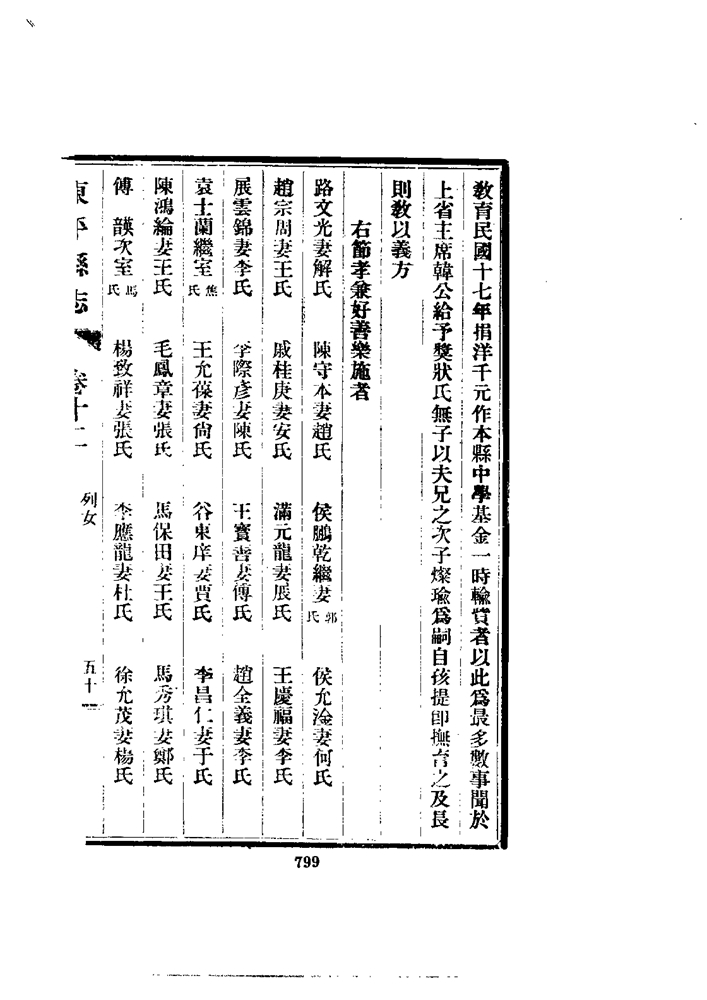 教育民國十七年捐洋千元作本縣中學基金一時輸貲者以此爲最多數事聞於
上省主席韓公給予獎狀氏無子以夫兄之次子燦瑜爲嗣自孩提即撫育之及長
則教以義方
右節孝兼好善樂施者
路文光妻解氏 陳守本妻趙氏 侯鵬乾繼妻郭氏 侯允淦妻何氏
趙宗周妻王氏 戚桂庚妻安氏 滿元龍妻展氏 王慶福妻李氏
展雲錦妻李氏 李際彥妻陳氏 王寳善妻傅氏 趙全義妻李氏
袁士蘭繼室焦氏 王允葆妻尙氏 谷東庠妻賈氏 李昌仁妻于氏
陳鴻綸妻王氏 毛鳳章妻張氏 馬保田妻王氏 馬秀琪妻鄭氏
傅韺次室馬氏 楊致祥妻張氏 李應龍妻杜氏 徐允茂妻楊氏
東平縣志 卷十二 列女 五十一
799